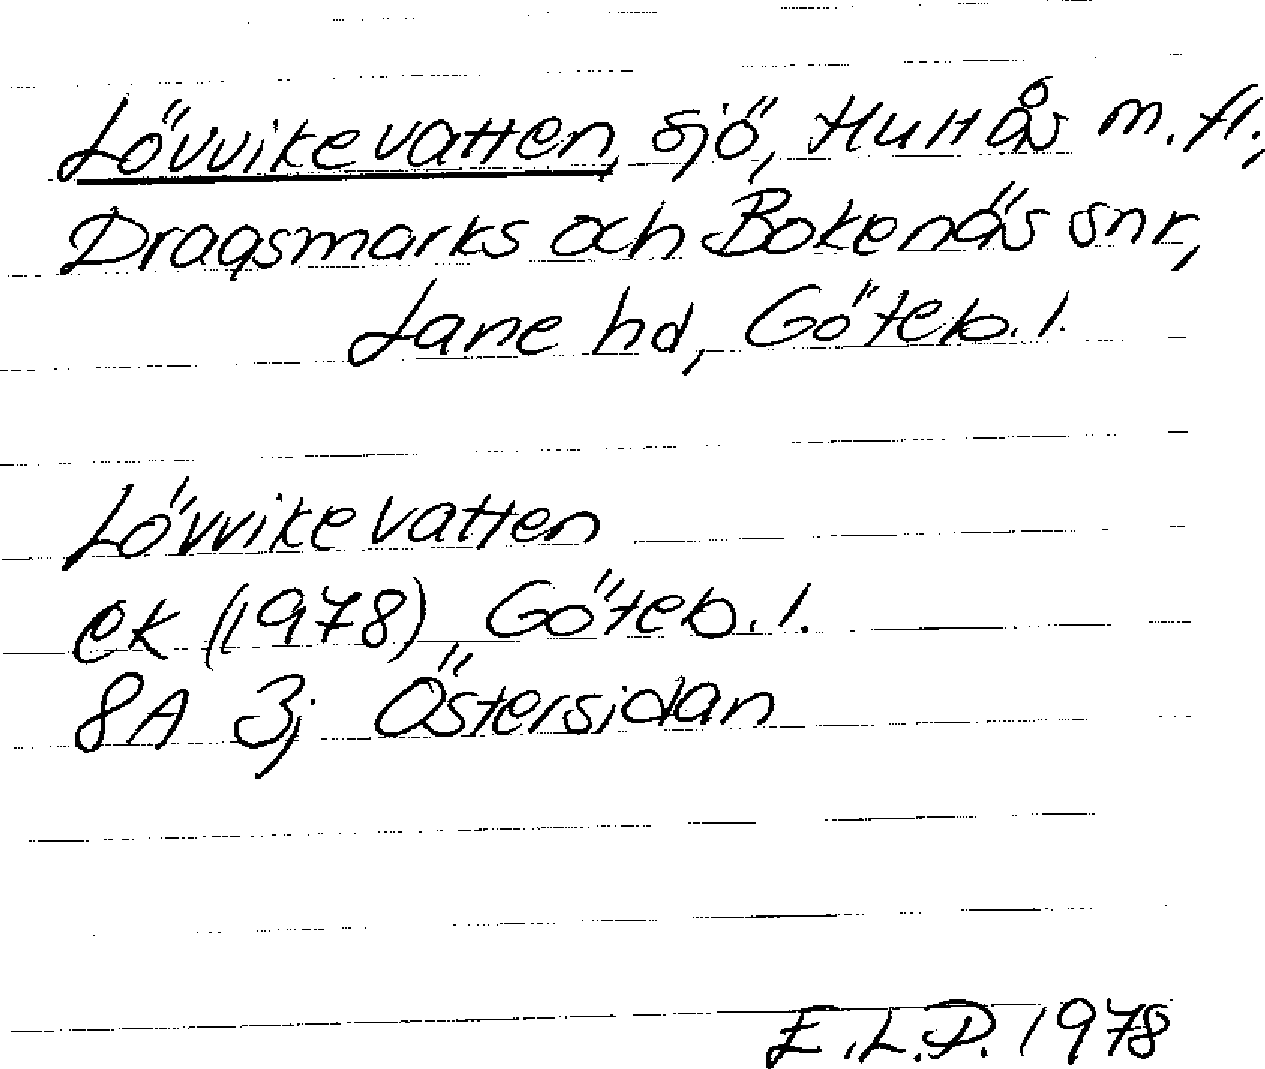 Lövvikevatten, sjö, Hultås m.fl.,
Dragsmarks och Bokenäs snr,
Lane hd, Göteb.l.
Lövvikevatten
ek (1978) Göteb.l.
8A 3j Östersidan
E.L.P. 1978